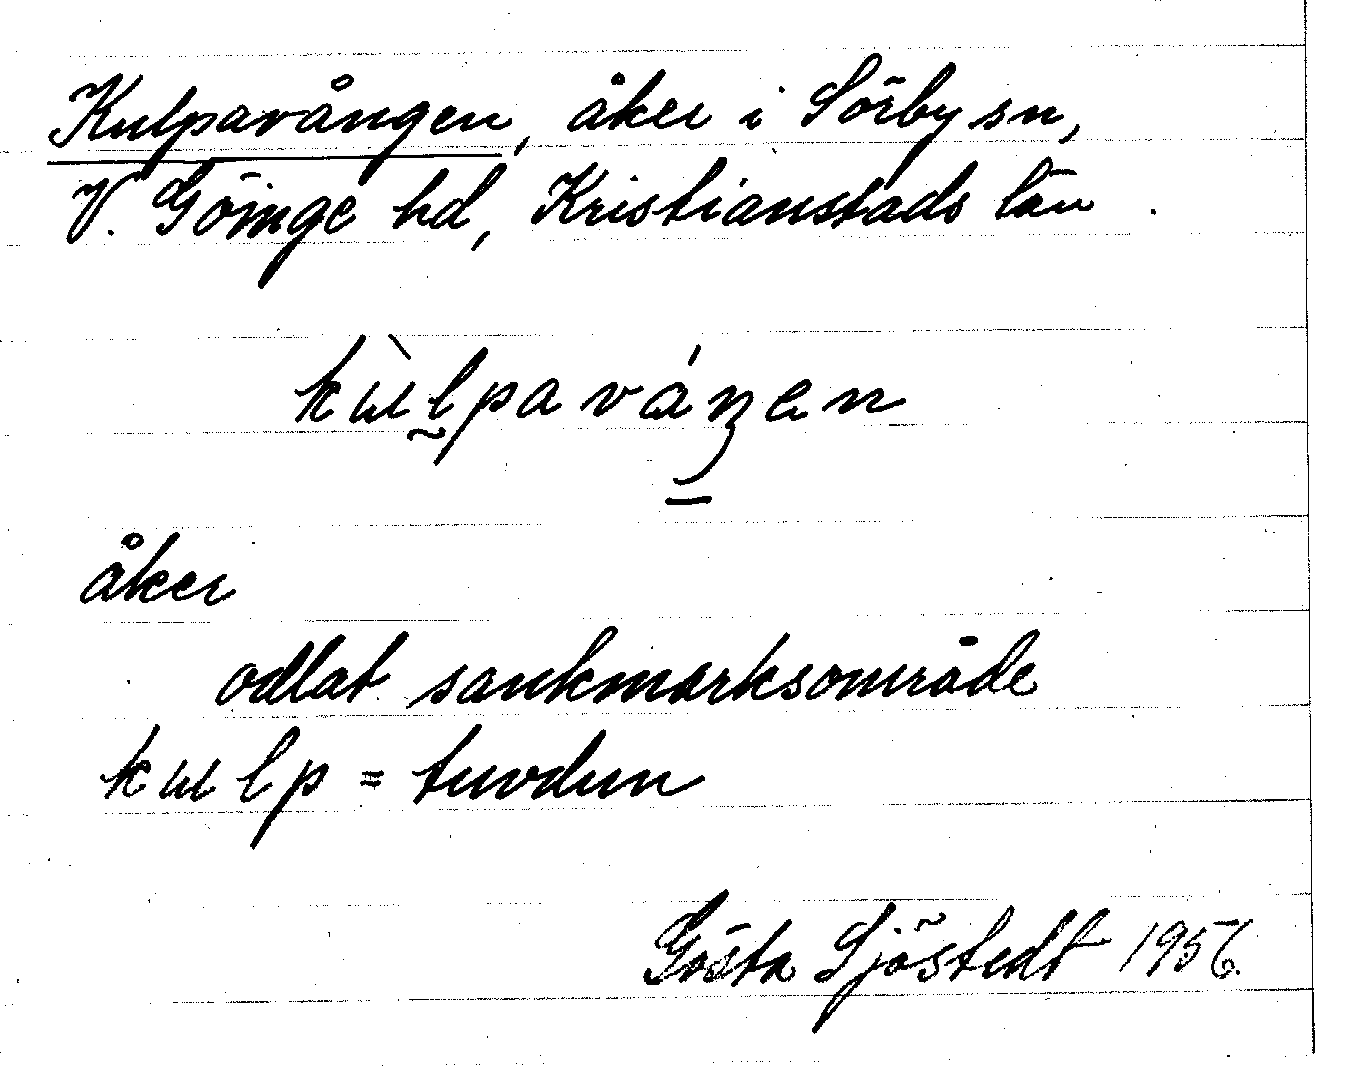 Kulpavången, åker i Sörby sn,
V. Göinge hd, Kristianstads län.
kùlpaváŋen
åker
odlat sankmarksområde
kulp = tuvdun
Gösta Sjöstedt 1956.